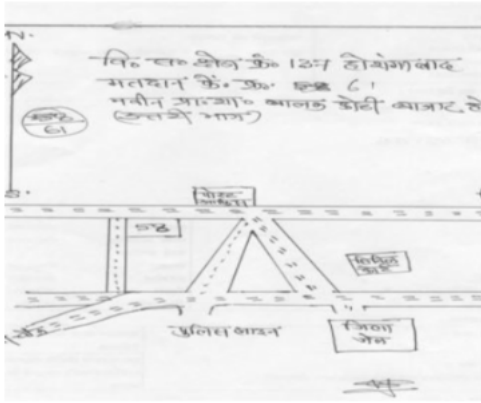 N.
वि० स० क्षेत्र क्रं० 137 होशंगाबाद
मतदान के० क्र० 61
नवीन प्रा०शा० बालक कोठी बाजार
(उत्तरी भाग)
61
S.
पोस्ट
58
सिविल
पुलिस लाइन
जिला
जेल